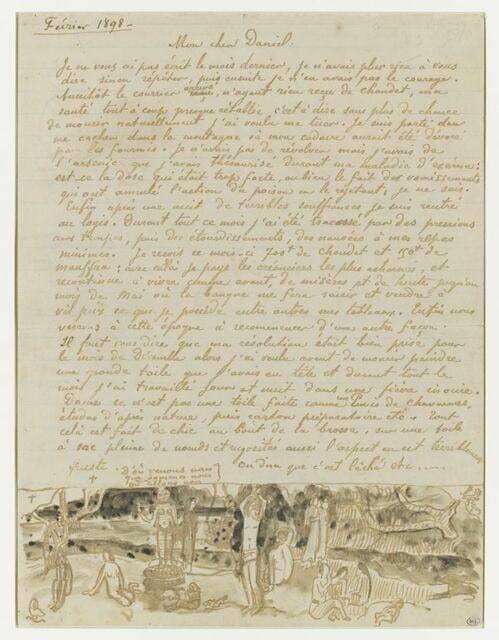 Février 1898 -
Mon cher Daniel.
Je ne vous ai pas écrit le mois dernier, je n'avais plus rien à vous
dire sinon répéter, puis ensuite je n'en avais pas le courage.
Aussitôt le courrier arrivé, n'ayant rien reçu de Chaudet, ma
santé tout à coup presque rétablie c'est à dire sans plus de chance
de mourir naturellement j'ai voulu me tuer. Je suis parti
me cacher dans la montagne où mon cadavre aurait été dévoré
par les fourmis. Je n'avais pas de révolver mais j'avais de
l'arsenic que j'avais thésaurisé durant ma maladie d'eczéma:
est-ce la dose qui était trop forte, ou bien le fait des vomissements
qui ont annulé l'action du poison en le rejetant, je ne sais.
Enfin après une nuit de terribles souffrances je suis rentré
au logis. Durant tout ce mois j'ai été tracassé par des pressions
aux tempes, puis des étourdissements, des nausées à mes repas
minimes. Je reçois ce mois-ci 700f de Chaudet et 150f de
Mauffra: avec cela je paye les créanciers les plus acharnés, et
recontinue à vivre comme avant, de misères et de honte jusqu'au
mois de Mai où la banque me fera saisir et vendre à
vil prix ce que je possède entre autres mes tableaux. Enfin nous
verrons à cette époque à recommencer d'une autre façon.
Il faut vous dire que ma résolution était bien prise pour
le mois de Décembre alors j'ai voulu avant de mourir peindre
une grande toile que j'avais en tête et durant tout le
mois j'ai travaillé jour et nuit dans une fièvre inouïe.
Dame ce n'est pas une toile faite comme un Puvis de Chavannes,
études d'après nature, puis carton préparatoire etc. Tout
cela est fait de chic au bout de la brosse, sur une toile
à sac pleine de nœuds et rugosités aussi l'aspect en est terriblement
fruste.
D'où venons nous
que sommes nous
où allons nous
On dira que c'est lâché etc ....